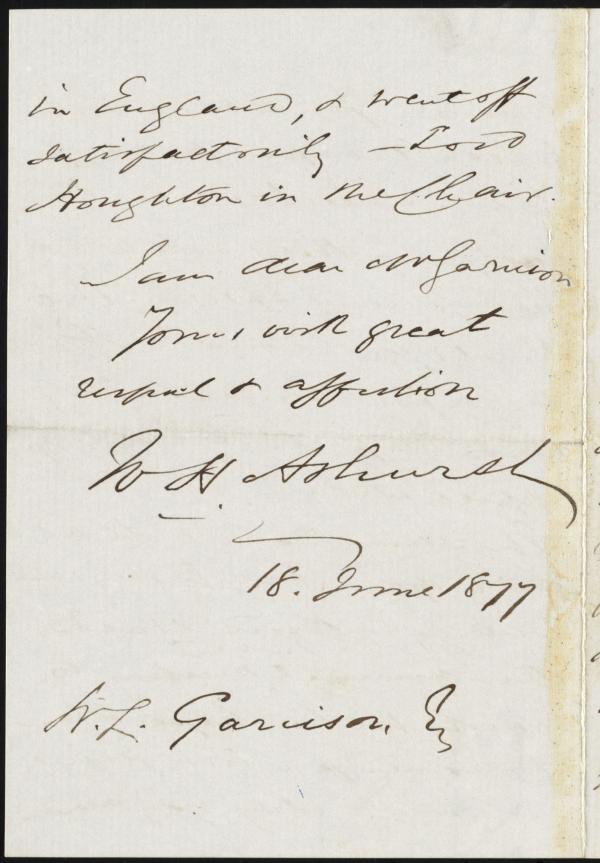 in England, & went off
satisfactorily – Lord
Houghton in the Chair.
I am dear Mr Garrison
Yours with great
respect & affection
W H Ashurst
18. June 1877
W. L. Garrison, Esq